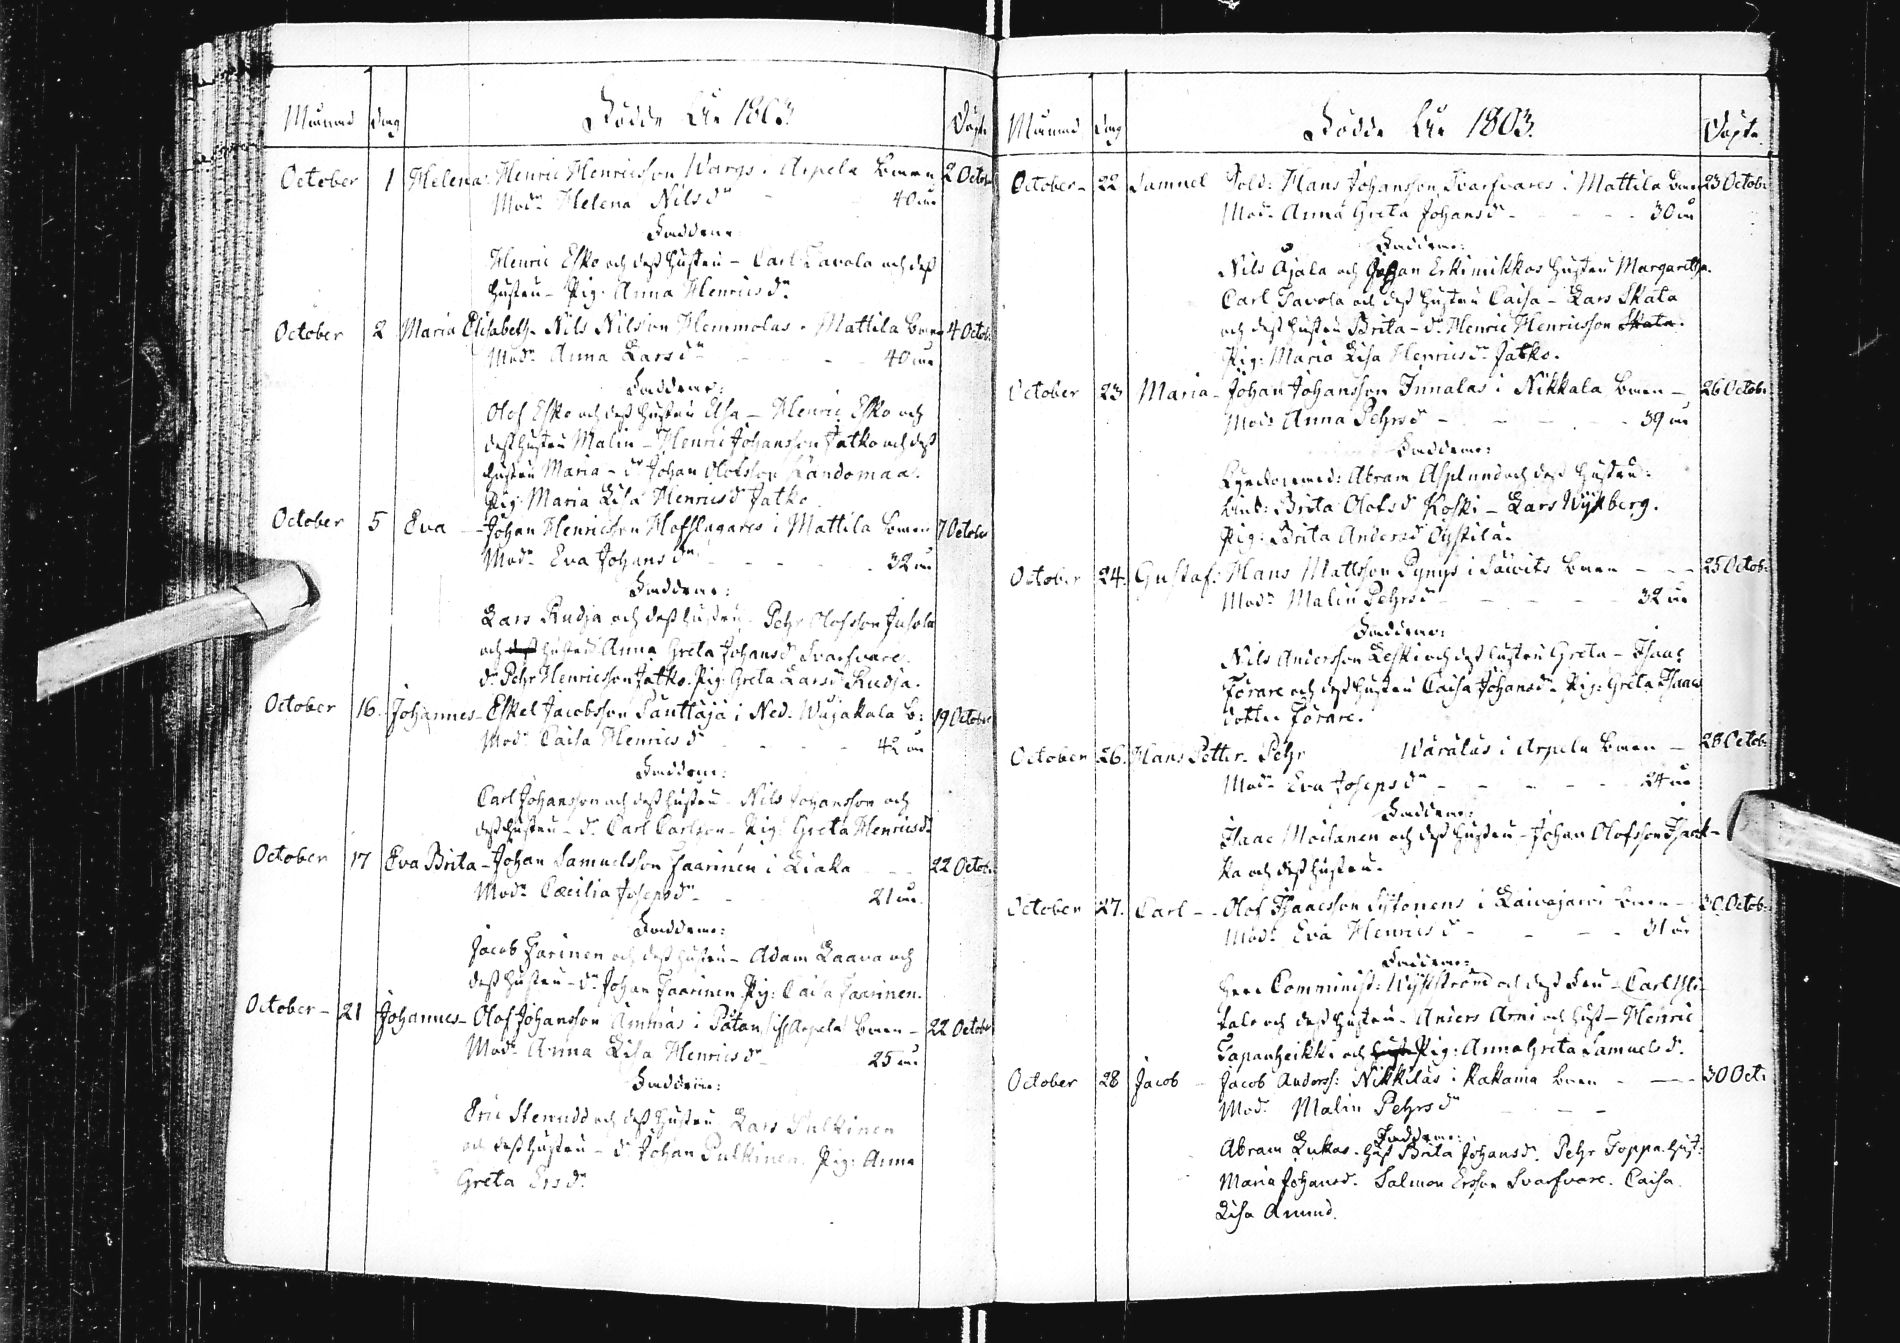 Månad dag Födde År 1803 Döpte
October 1 Helena. Henric Henricsson Wargs i Arpela Barn 2 Octobr
Modr Helena Nilsdr 40 år
Faddrar:
Henric Esko och dess hustru – Carl Tavola och dess
hustru – Pig: Anna Henricsdr
October 2 Maria Elisabeth – Nils Nilsson Hemmolas i Mattila Barn 4 Octob:
Modr Anna Larsdr 40 år
Faddrar:
Olof Esko och dess hustru Elsa – Henric Esko och
dess hustru Malin – Henric Johansson Jatko och dess
hustru Maria – dr Johan Olofsson Kandomaa.
Pig: Maria Lisa Henricsdr Jatko
October 5 Eva – Johan Henricsson Hofslagares i Mattila Barn 7 Octobr
Modr Eva Johansdr 32 år
Faddrar:
Lars Rudja och dess hustru. Pehr Olofsson Jusola
och dess hustru Anna Greta Johansdr Svarfvare.
dr Pehr Henricsson Jatko. Pig: Greta Larsdr Rudja.
October 16. Johannes – Eskel Jacobsson Santtaja i Ned. Wojakala B: 19 Octobr
Modr Caisa Henricsdr 42 år
Faddrar:
Carl Johansson och dess hustru – Nils Johansson och
dess hustru – dr Carl Carlsson – Pig: Greta Henricsdr
October 17 Eva Brita – Johan Samuelsson Faarinen i Liaka 22 Octob:
Modr Cæcilia Josepsdr 21 år.
Faddrar:
Jacob Farinen och dess hustru – Adam Laava och
dess hustru – dr Johan Faarinen Pig: Caisa Faarinen.
October – 21 Johannes – Olof Johansson i Arpela Barn – 22 Octobr
Modr Anna Lisa Henricsdr 25 år
Faddrar:
Eric Stenudd och dess hustru Lars Pulkinen
och dess hustru – dr Johan Pulkinen. Pig: Anna
Greta Ersdr
Månad Dag Födde År 1803. Döpte.
October – 22 Samuel Sold: Hans Johansson Svarfvares i Mattila Barn 23 Octobr
Modr Anna Greta Johansdr 30 år
Faddrar:
Nils Ajala och Johan Erkimikkos hustru Margaretha.
Carl Tavola och dess hustru Caisa – Lars Skata
och dess hustru Brita – dr Henric Henricsson Skata.
Pig: Maria Lisa Henricsdr Jatko.
October 23 Maria – Johan Johansson Innalas i Nikkala Barn – 26 Octobr
Modr Anna Pehrsdr 39 år
Faddrar:
Abram Asplund och dess hustru.
Brita Olofsdr Koski – Lars Wykberg.
Pig: Brita Andersdr
October 24. Gustaf. Hans Mattsson Pynys i Säivits Barn 25 Octob:
Modr Malin Pehrsdr 32 år
Faddrar:
Nils Andersson Leski och dess hustru Greta – Isaac
Förare och dess hustru Caisa Johansdr – Pig: Greta Isaacs
dotter Förare.
October 26. Hans Petter. Pehr Wäräläs i Arpela Barn – 28 Octob:
Modr Eva Josepsdr 24 år
Faddrar:
Isaac Moilanen och dess hustru – Johan Olofsson
ka och dess hustru.
October 27. Carl – Olof Isaacsson Sytonens i Laivajarvi Barn – 30 Octob:
Modr Eva Henricsdr 31 år
Faddrar:
Herr Comminist: Wykström och dess Fru – Carl Yli
talo och dess hustru. Anders Arni och hust – Henric
Tapanheikki och hust Pig: Anna Greta Samuelsdr.
October 28 Jacob – Jacob Anderss: Nikkiläs i Kakama Barn 30 Oct:
Modr Malin Pehrsdr
Faddrar:
Abram Lukas. hust Brita Johansdr. Pehr Toppa. hust:
Maria Johansd. Salmon Ersson Svarfvare. Caisa
Lisa Anund.